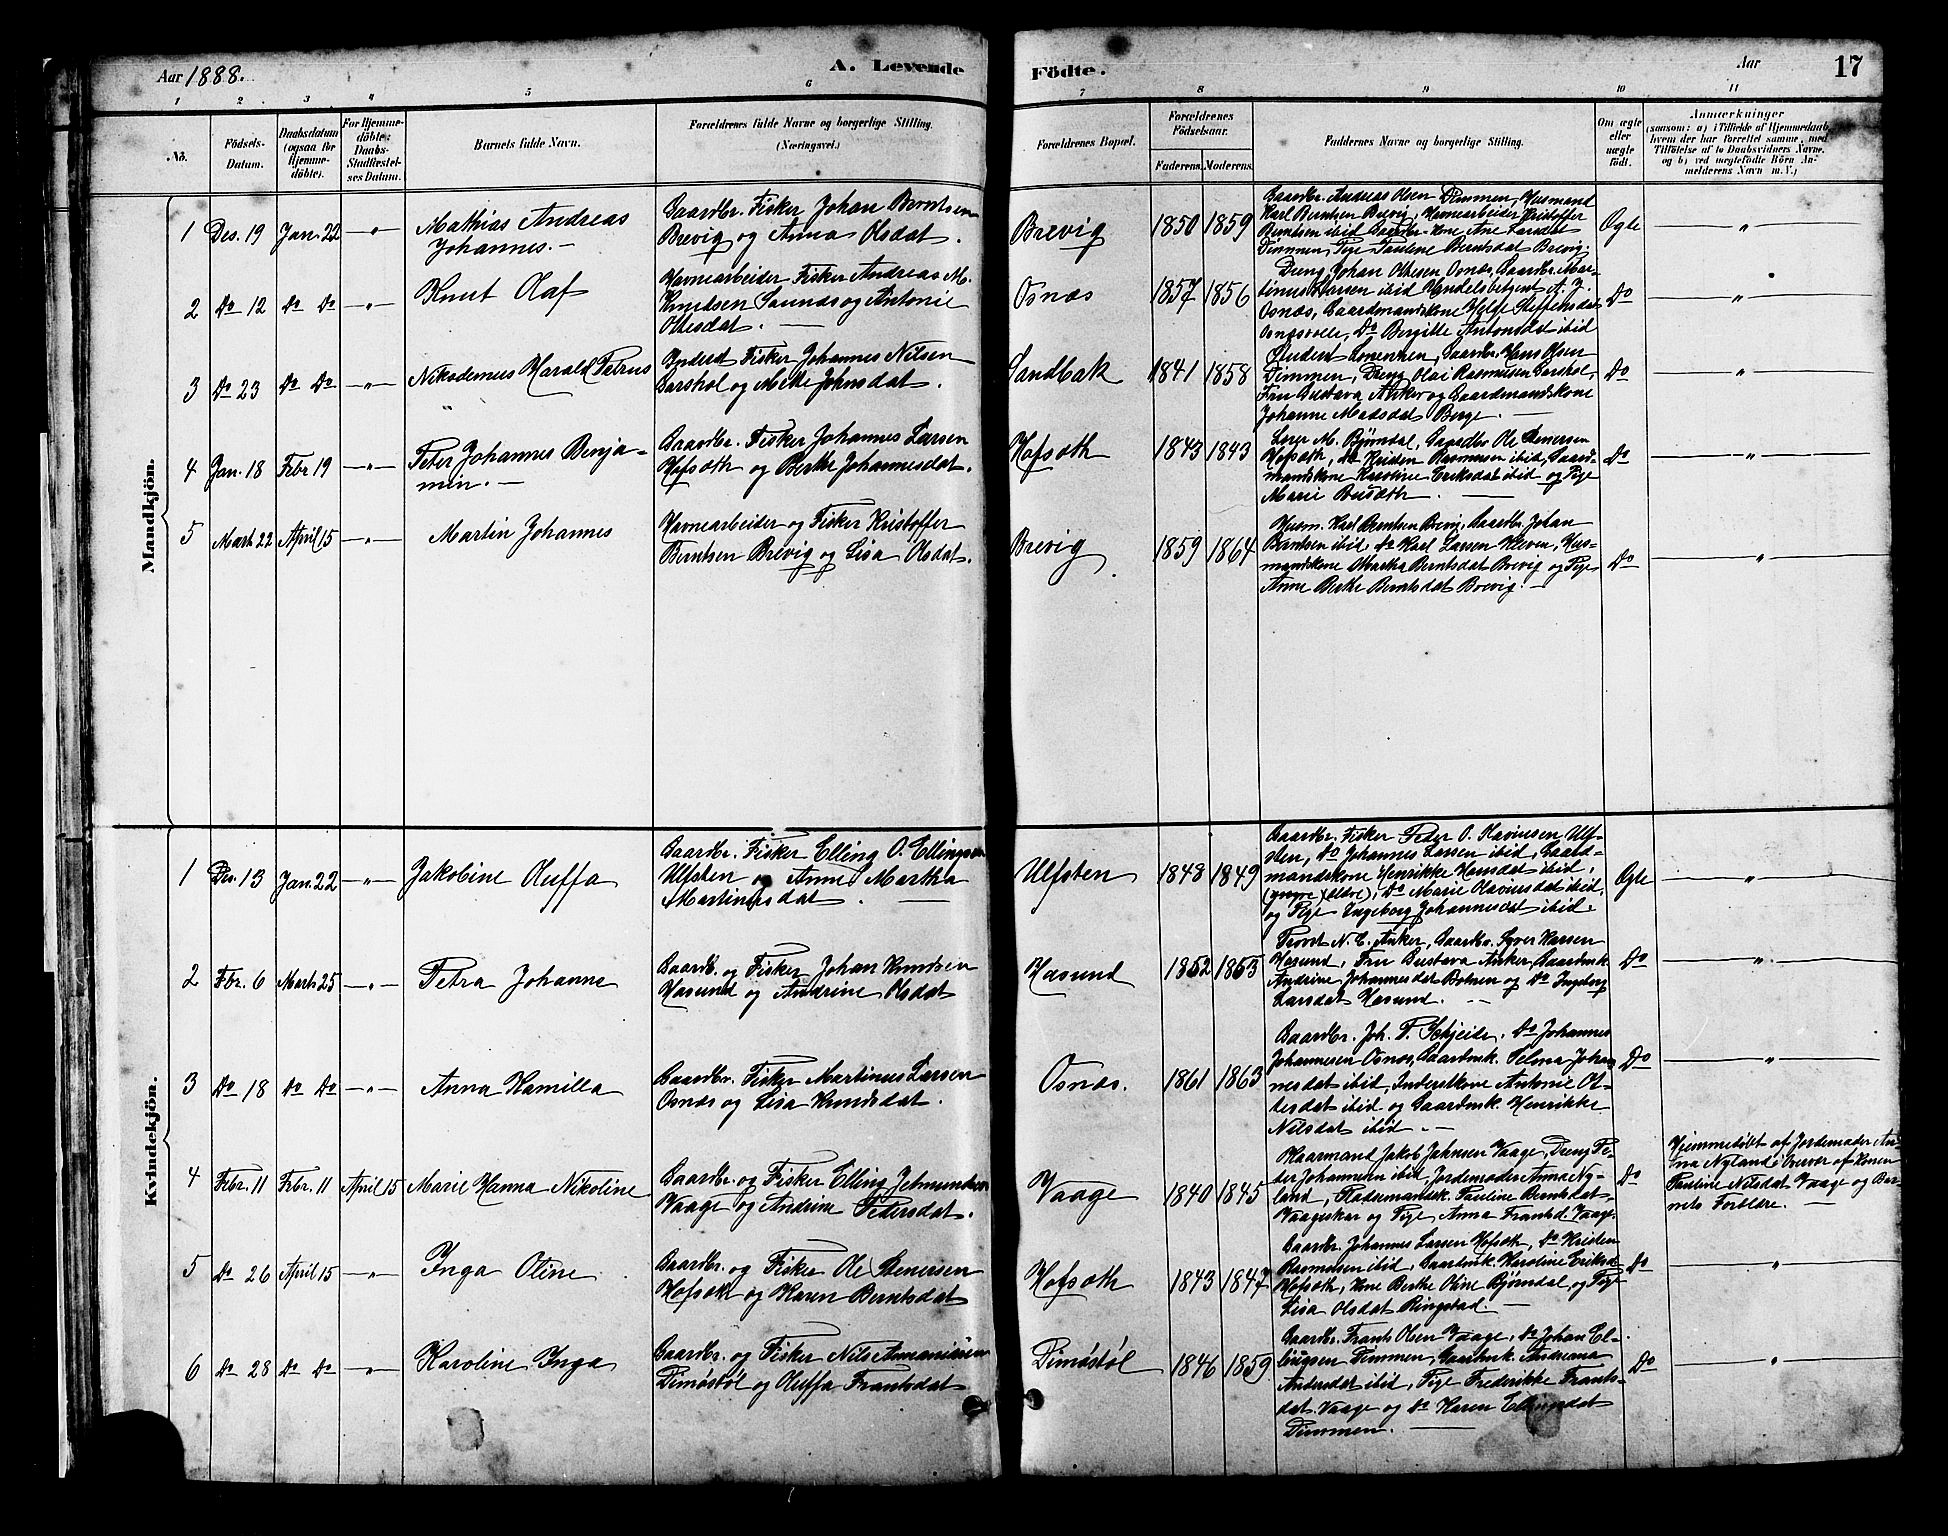 Aar 1888.
A. Levende
Födte.
Aar
17
1 2 3 4 5 6 7 8 9 10 11
No.
Födsels-
Datum.
Daabsdatum
(ogsaa for
Hjemme-
döbte).
For Hjemme-
döbte:
Daabs-
Stadfæstel-
ses Datum.
Barnets fulde Navn.
Forældrenes fulde Navne og borgerlige Stilling.
(Næringsvei.)
Forældrenes Bopæl.
Forældrenes
Födselsaar.
Faderens. Moderens.
Faddernes Navne og borgerlige Stilling.
Om ægte
eller
uægte
födt.
Anmærkninger
(saasom: a) i Tilfælde af Hjemmedaab,
hvem der har forrettet samme, med
Tilföielse af to Daabsvidners Navne,
og b) ved uægtefödte Börn An-
melderens Navn m. V.)
Mandkjön.
1 Des. 19 Jan. 22 " Mathias Andreas
Johannes.
Gaardbr. Fisker Johan Berntsen
Brevig og Anna Olsdat.
Brevig 1850 1859
Gaardbr. Andreas Olsen Dimmen, Husmand
Karl Berntsen Brevig, Havnearbeider Kristoffer
Berntsen ibid
Dimmen, Pige Pauline Berntsdat Brevig.
Ægte "
2 Do 12 Do Do " Knut Olaf
Havnearbeider Fisker Andreas M.
Knudsen Saunds og Antonie
Ottesdat.
Osnæs 1857 1856
Dreng Johan Ottesen Osnæs, Gaardbr. Mar-
tinus Larsen ibid Handelsbetjent A. J.
Osnæs, Gaardmandskone Helge Steffensdat
Osnæsvolle, Do Bergitte Antonsdat ibid
Do "
3 Do 23 Do Do " Nikodemus Harald Petrus
Inderst Fisker Johannes Nilsen
Garshol og Mette Johnsdat.
Sandbak 1841 1858
Student Lonenken, Gaardbr. Hans Olsen
Dimmen, Dreng Olai Rasmusen Garshol,
Fru Gustava Anker og Gaardmandskone
Johanne Madsdat Berge.
Do "
4 Jan. 18 Febr 19 " Peter Johannes Benja-
min.
Gaardbr. Fisker Johannes Larsen
Hofsøth og Berthe Johannesdat.
Hofsøth 1843 1843
Lærer M. Bjørndal, Gaardbr Ole Stenersen
Hofsøth, Do Kristen Rasmusen ibid, Gaard-
mandskone Karoline Eriksdat ibid og Pige
Marie Busæth.
Do "
5 Mart. 22 April 15 " Martin Johannes
Havnearbeider og Fisker Kristoffer
Berntsen Brevig og Lisa Olsdat.
Brevig 1859 1864
Husm. Karl Berntsen Brevig, Gaardbr. Johan
Berntsen ibid, Do Karl Larsen Kleven, Hus-
mandskone Martha Berntsdat Brevig og Pige
Anne Berthe Berntsdat Brevig.
Do "
Kvindekjön.
1 Des. 13 Jan. 22 " Jakobine Oluffa
Gaardbr. Fisker Elling O. Ellingsen
Ulfsten og Anne Martha
Martinusdat.
Ulfsten 1848 1849
Gaardbr. Fisker Peder O. Haviusen Ulf-
sten, Do Johannes Larsen ibid, Gaard-
mandskone Henrikke Hansdat ibid,
(yngre) (ældre), Do Marie Olaviusdat ibid,
og Pige Ingeborg Johannesdat ibid.
Ægte "
2 Fbr. 6 Marts 25 " Petra Johanna
Gaardb. og Fisker Johan Knudsen
Hasund og Andrine Olsdat
Hasund 1852 1853
Provst N. C. Anker, Gaardbr. Syver Larsen
Hasund, Fru Gustava Anker, Gaardmk.
Andrine Johannesdat Botnen og Do Ingeborg
Larsdat Hasund.
Do "
3 Do 18 Do Do " Anna Kamilla
Gaardbr. Fisker Martinus Larsen
Osnæs og Lisa Knudsdat.
Osnæs. 1861 1863
Gaardbr. Joh. P. Skjeide, Do Johannes
Johannesen Osnæs, Gaardmk. Pelma Johan
nesdat ibid, Inderstkone Antonie Ot-
tesdat ibid og Gaardmk. Henrikke
Nilsdat ibid.
Do "
4 Febr. 11 Febr. 11 April 15 Marie Hanna Nikoline
Gaardbr. og Fisker Elling Jetmundsen
Vaage og Andrine Pedersdat.
Vaage 1840 1845
Kaarmand Jakob Jahnsen Vaage, Dreng Pe-
der Johannesen ibid, Jordemoder Anna Ny-
land, Pladsemandsk. Pauline Berntsdat
Vaageskar og Pige Anna Frantsd. Vaage.
Do
Hjemmedøbt af Jordemoder An-
na Nyland i Overvær af Konen
Pauline Nilsdat Vaage og Bar-
nets Forældre.
5 Do 26 April 15 " Inga Oline
Gaardbr. og Fisker Ole Stenersen
Hofsøth og Karen Berntsdat
Hofsøth 1843 1847
Gaardbr. Johannes Larsen Hofsøth, Do Kristen
Rasmusen ibid, Gaardmk. Karoline Eriksd.
Hofsøth, Kone Berthe Oline Bjørndal, og Pige
Lisa Olsdat Ringstad.
Do "
6 Do 28 Do Do " Karoline Inga
Gaardbr. og Fisker Nils Ananiasen
Dimøstøl og Oluffa Frantsdat
Dimøstøl 1846 1859
Gaardbr. Frants Olsen Vaage, Do Johan El-
lingsen Dimmen, Gaardmk. Andreana
Andersdat ibid, Pige Frederikke Frants-
dat Vaage og Do Karen Ellingsdat
Dimmen.
Do "